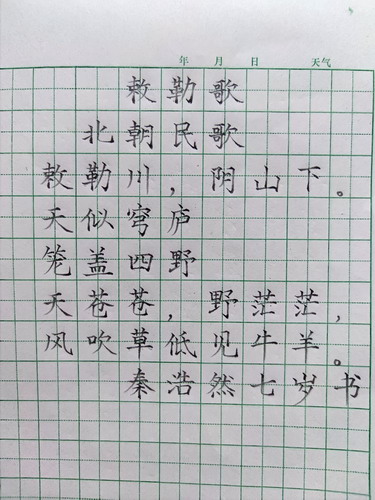 年 月 日 天气
敕勒歌
北朝民歌
敕勒川，阴山下。
天似穹庐
笼盖四野
天苍苍，野茫茫，
风吹草低见牛羊。
秦浩然七岁书